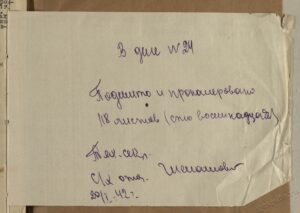 В деле № 24
Подшито и пронумеровано
118 листов (сто восемнадцать)
Тех. секр.
С/х отд.
20/I. 42 г.